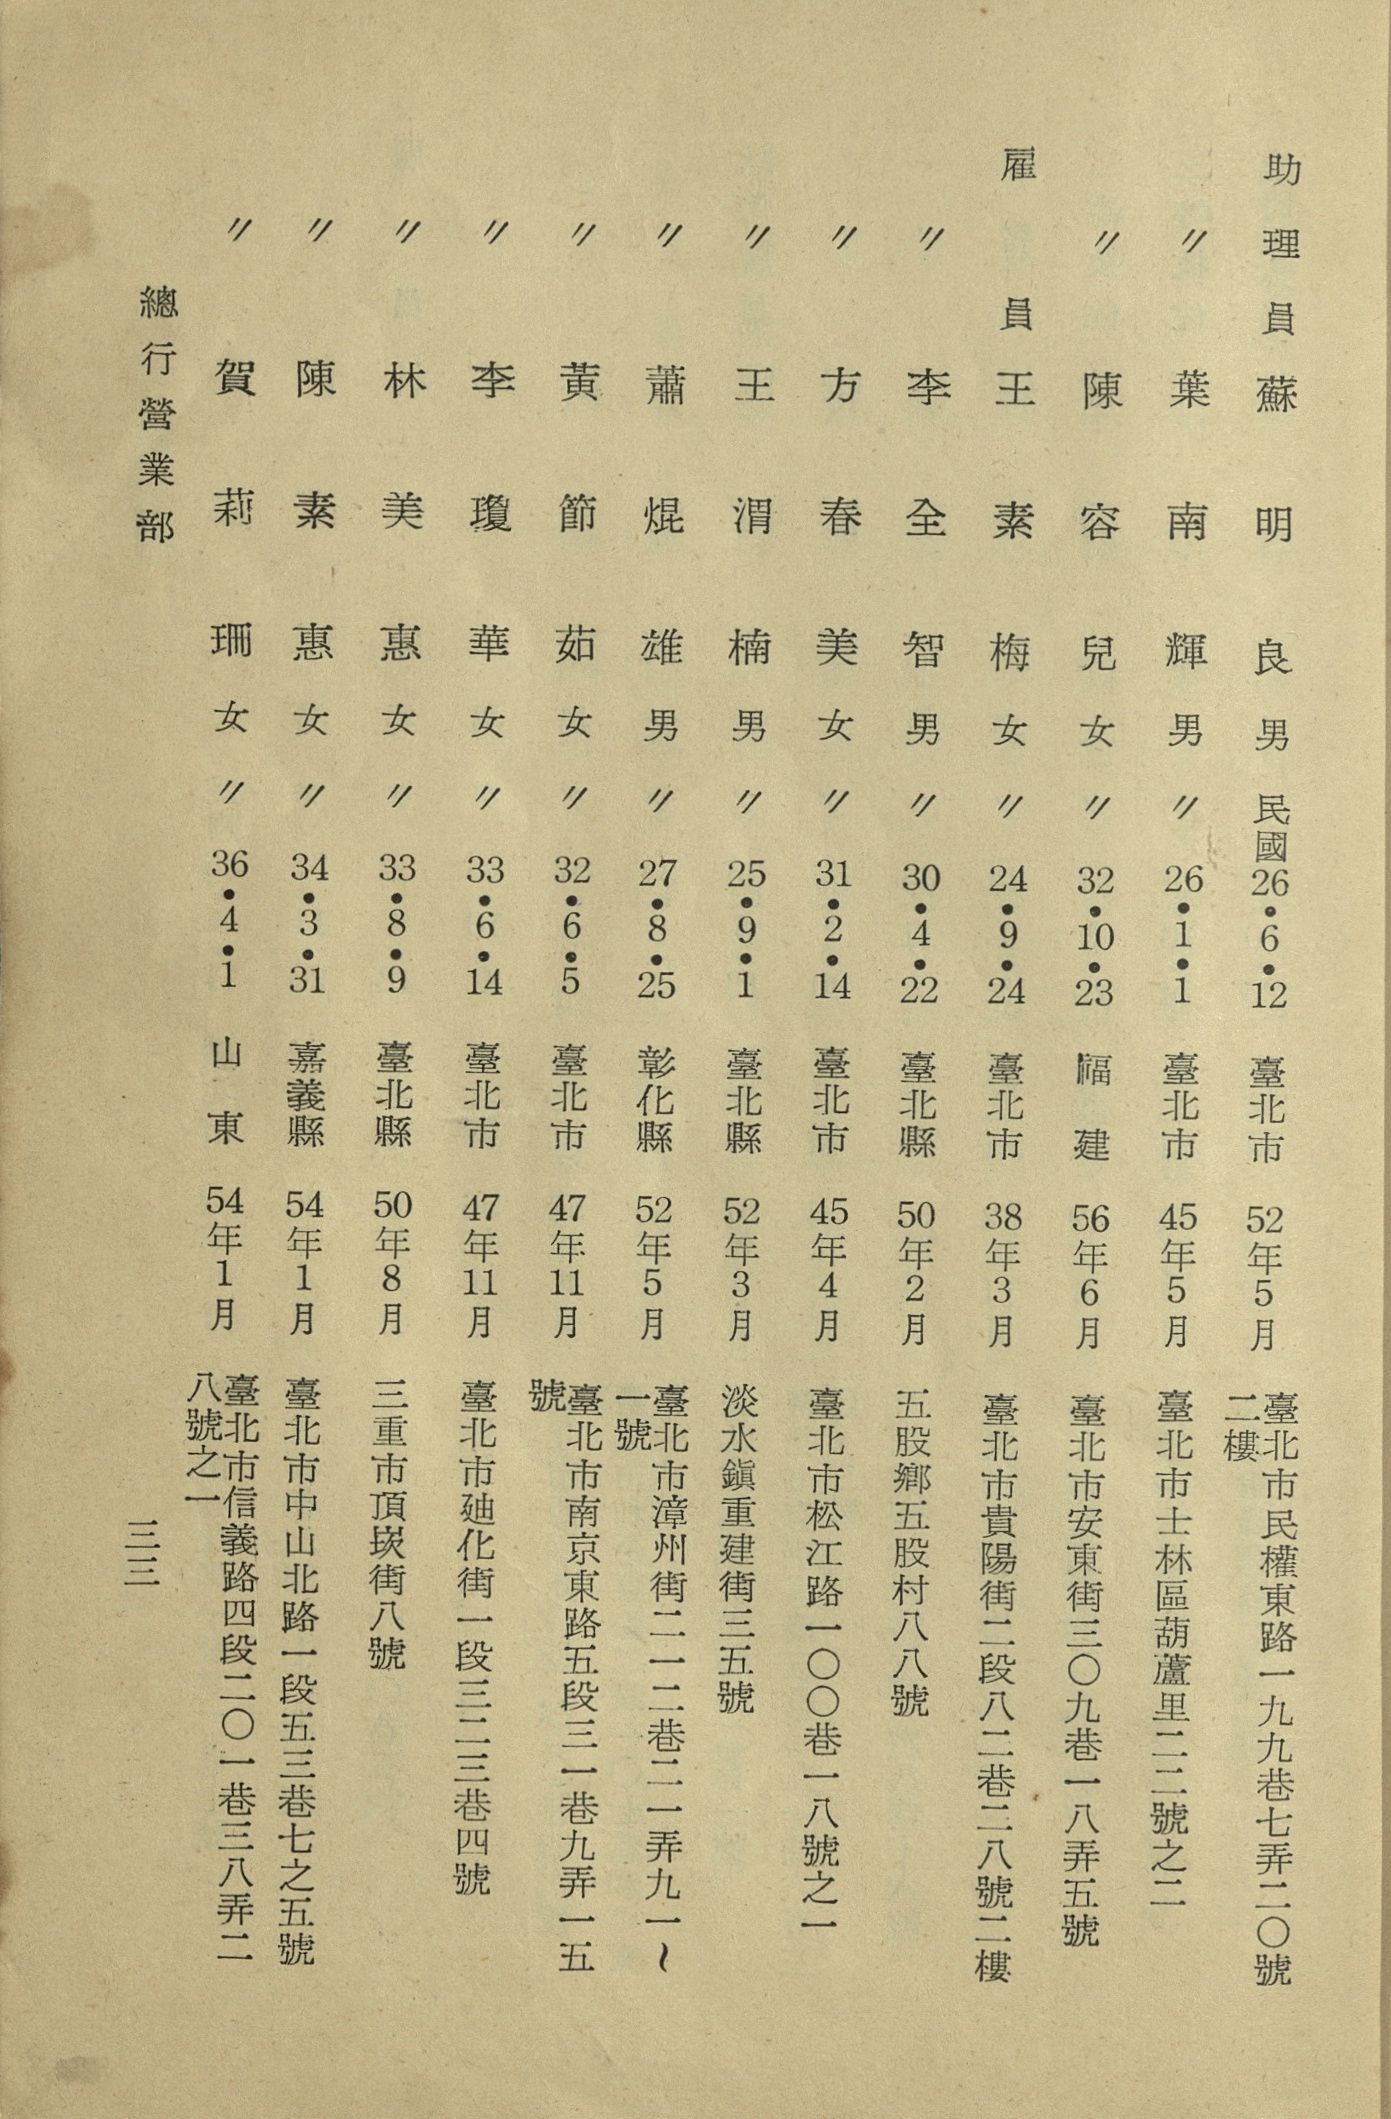 助理員 蘇明良 男 民國26•6•12 臺北市 52年5月 臺北市民權東路一九九巷七弄二〇號
二樓
〃 葉南輝 男 〃 26•1•1 臺北市 45年5月 臺北市士林區葫蘆里二二號之二
〃 陳容兒 女 〃 32•10•23 福建 56年6月 臺北市安東街三〇九巷一八弄五號
雇員 王素梅 女 〃 24•9•24 臺北市 38年3月 臺北市貴陽街二段八二巷二八號二樓
〃 李全智 男 〃 30•4•22 臺北縣 50年2月 五股鄉五股村八八號
〃 方春美 女 〃 31•2•14 臺北市 45年4月 臺北市松江路一〇〇巷一八號之一
〃 王渭楠 男 〃 25•9•1 臺北縣 52年3月 淡水鎭重建街三五號
〃 蕭焜雄 男 〃 27•8•25 彰化縣 52年5月 臺北市漳州街二一二巷二一弄九一~
一號
〃 黃節茹 女 〃 32•6•5 臺北市 47年11月 臺北市南京東路五段三一巷九弄一五
號
〃 李瓊華 女 〃 33•6•14 臺北市 47年11月 臺北市廸化街一段三二三巷四號
〃 林美惠 女 〃 33•8•9 臺北縣 50年8月 三重市頂崁街八號
〃 陳素惠 女 〃 34•3•31 嘉義縣 54年1月 臺北市中山北路一段五三巷七之五號
〃 賀莉珊 女 〃 36•4•1 山東 54年1月 臺北市信義路四段二〇一巷三八弄二
八號之一
總行營業部
三三